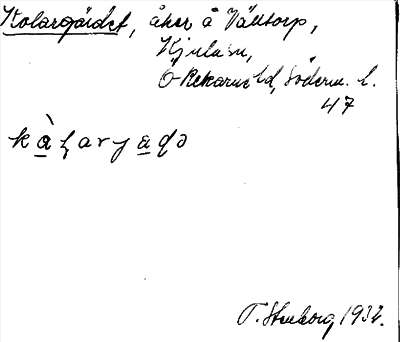 Kolargärdet, åker å Välltorp,
Kjula sn,
Ö Rekarne hd, Söderm. l.
47
kàɽarɟaɖə
T. Stenborg 1932.